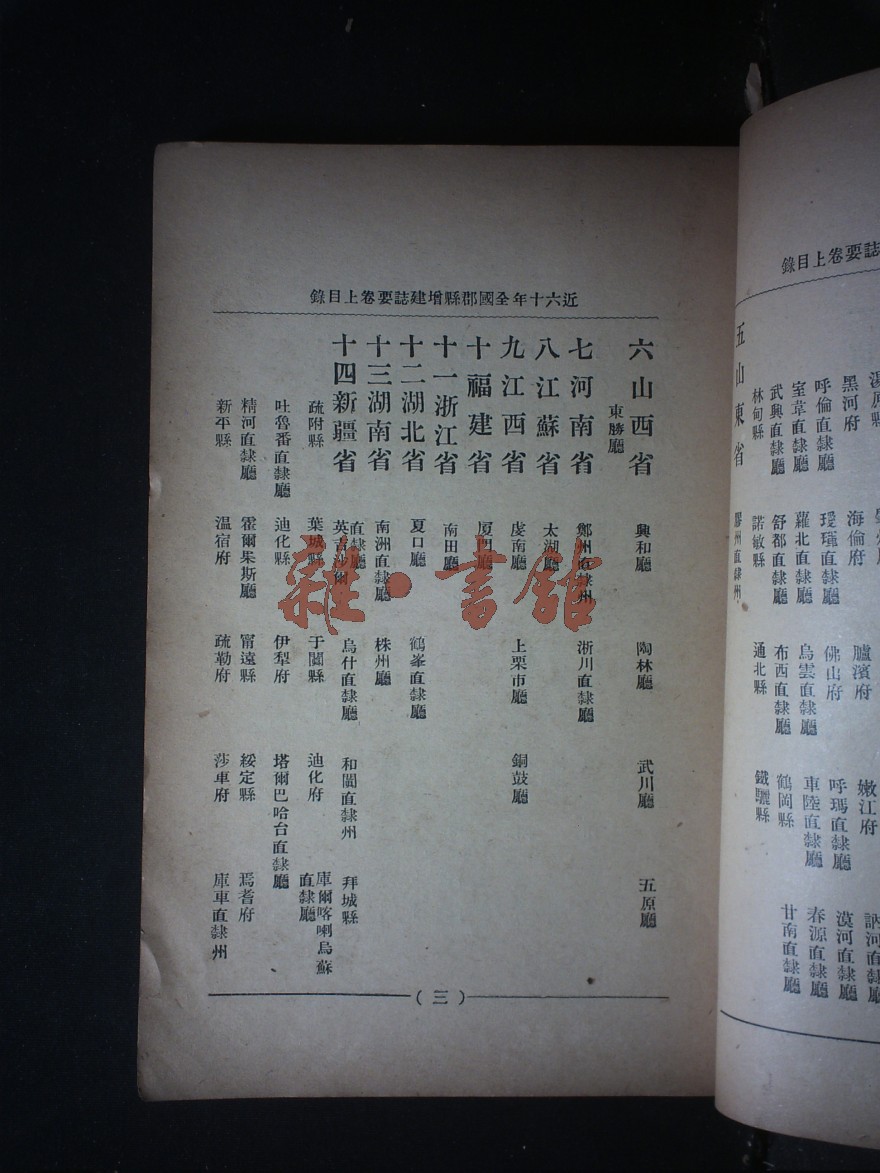 近六十年全國郡縣增建誌要卷上目錄
六山西省 興和廳 陶林廳 武川廳 五原廳
東勝廳
七河南省 鄭州直隸州 淅川直隸廳
八江蘇省 太湖廳
九江西省 虔南廳 上栗市廳 銅鼓廳
十福建省 厦門廳
十一浙江省 南田廳
十二湖北省 夏口廳 鶴峯直隸廳
十三湖南省 南洲直隸廳 株州廳
十四新疆省 英吉沙爾直隸廳 烏什直隸廳 和闐直隸州 拜城縣
疏附縣 葉城縣 于闐縣 迪化府 庫爾喀喇烏蘇直隸廳
吐魯番直隸廳 迪化縣 伊犁府 塔爾巴哈台直隸廳
精河直隸廳 霍爾果斯廳 甯遠縣 綏定縣 焉耆府
新平縣 温宿府 疏勒府 莎車府 庫車直隸州
(三)
雜·書舘
誌要卷上目錄
湯原縣
黑河府 海倫府 臚濱府 嫩江府 訥河直隸廳
呼倫直隸廳 璦琿直隸廳 佛山府 呼瑪直隸廳 漠河直隸廳
室韋直隸廳 蘿北直隸廳 烏雲直隸廳 車陸直隸廳 春源直隸廳
武興直隸廳 舒都直隸廳 布西直隸廳 鶴岡縣 甘南直隸廳
林甸縣 諾敏縣 通北縣 鐵驪縣
五山東省 膠州直隸州